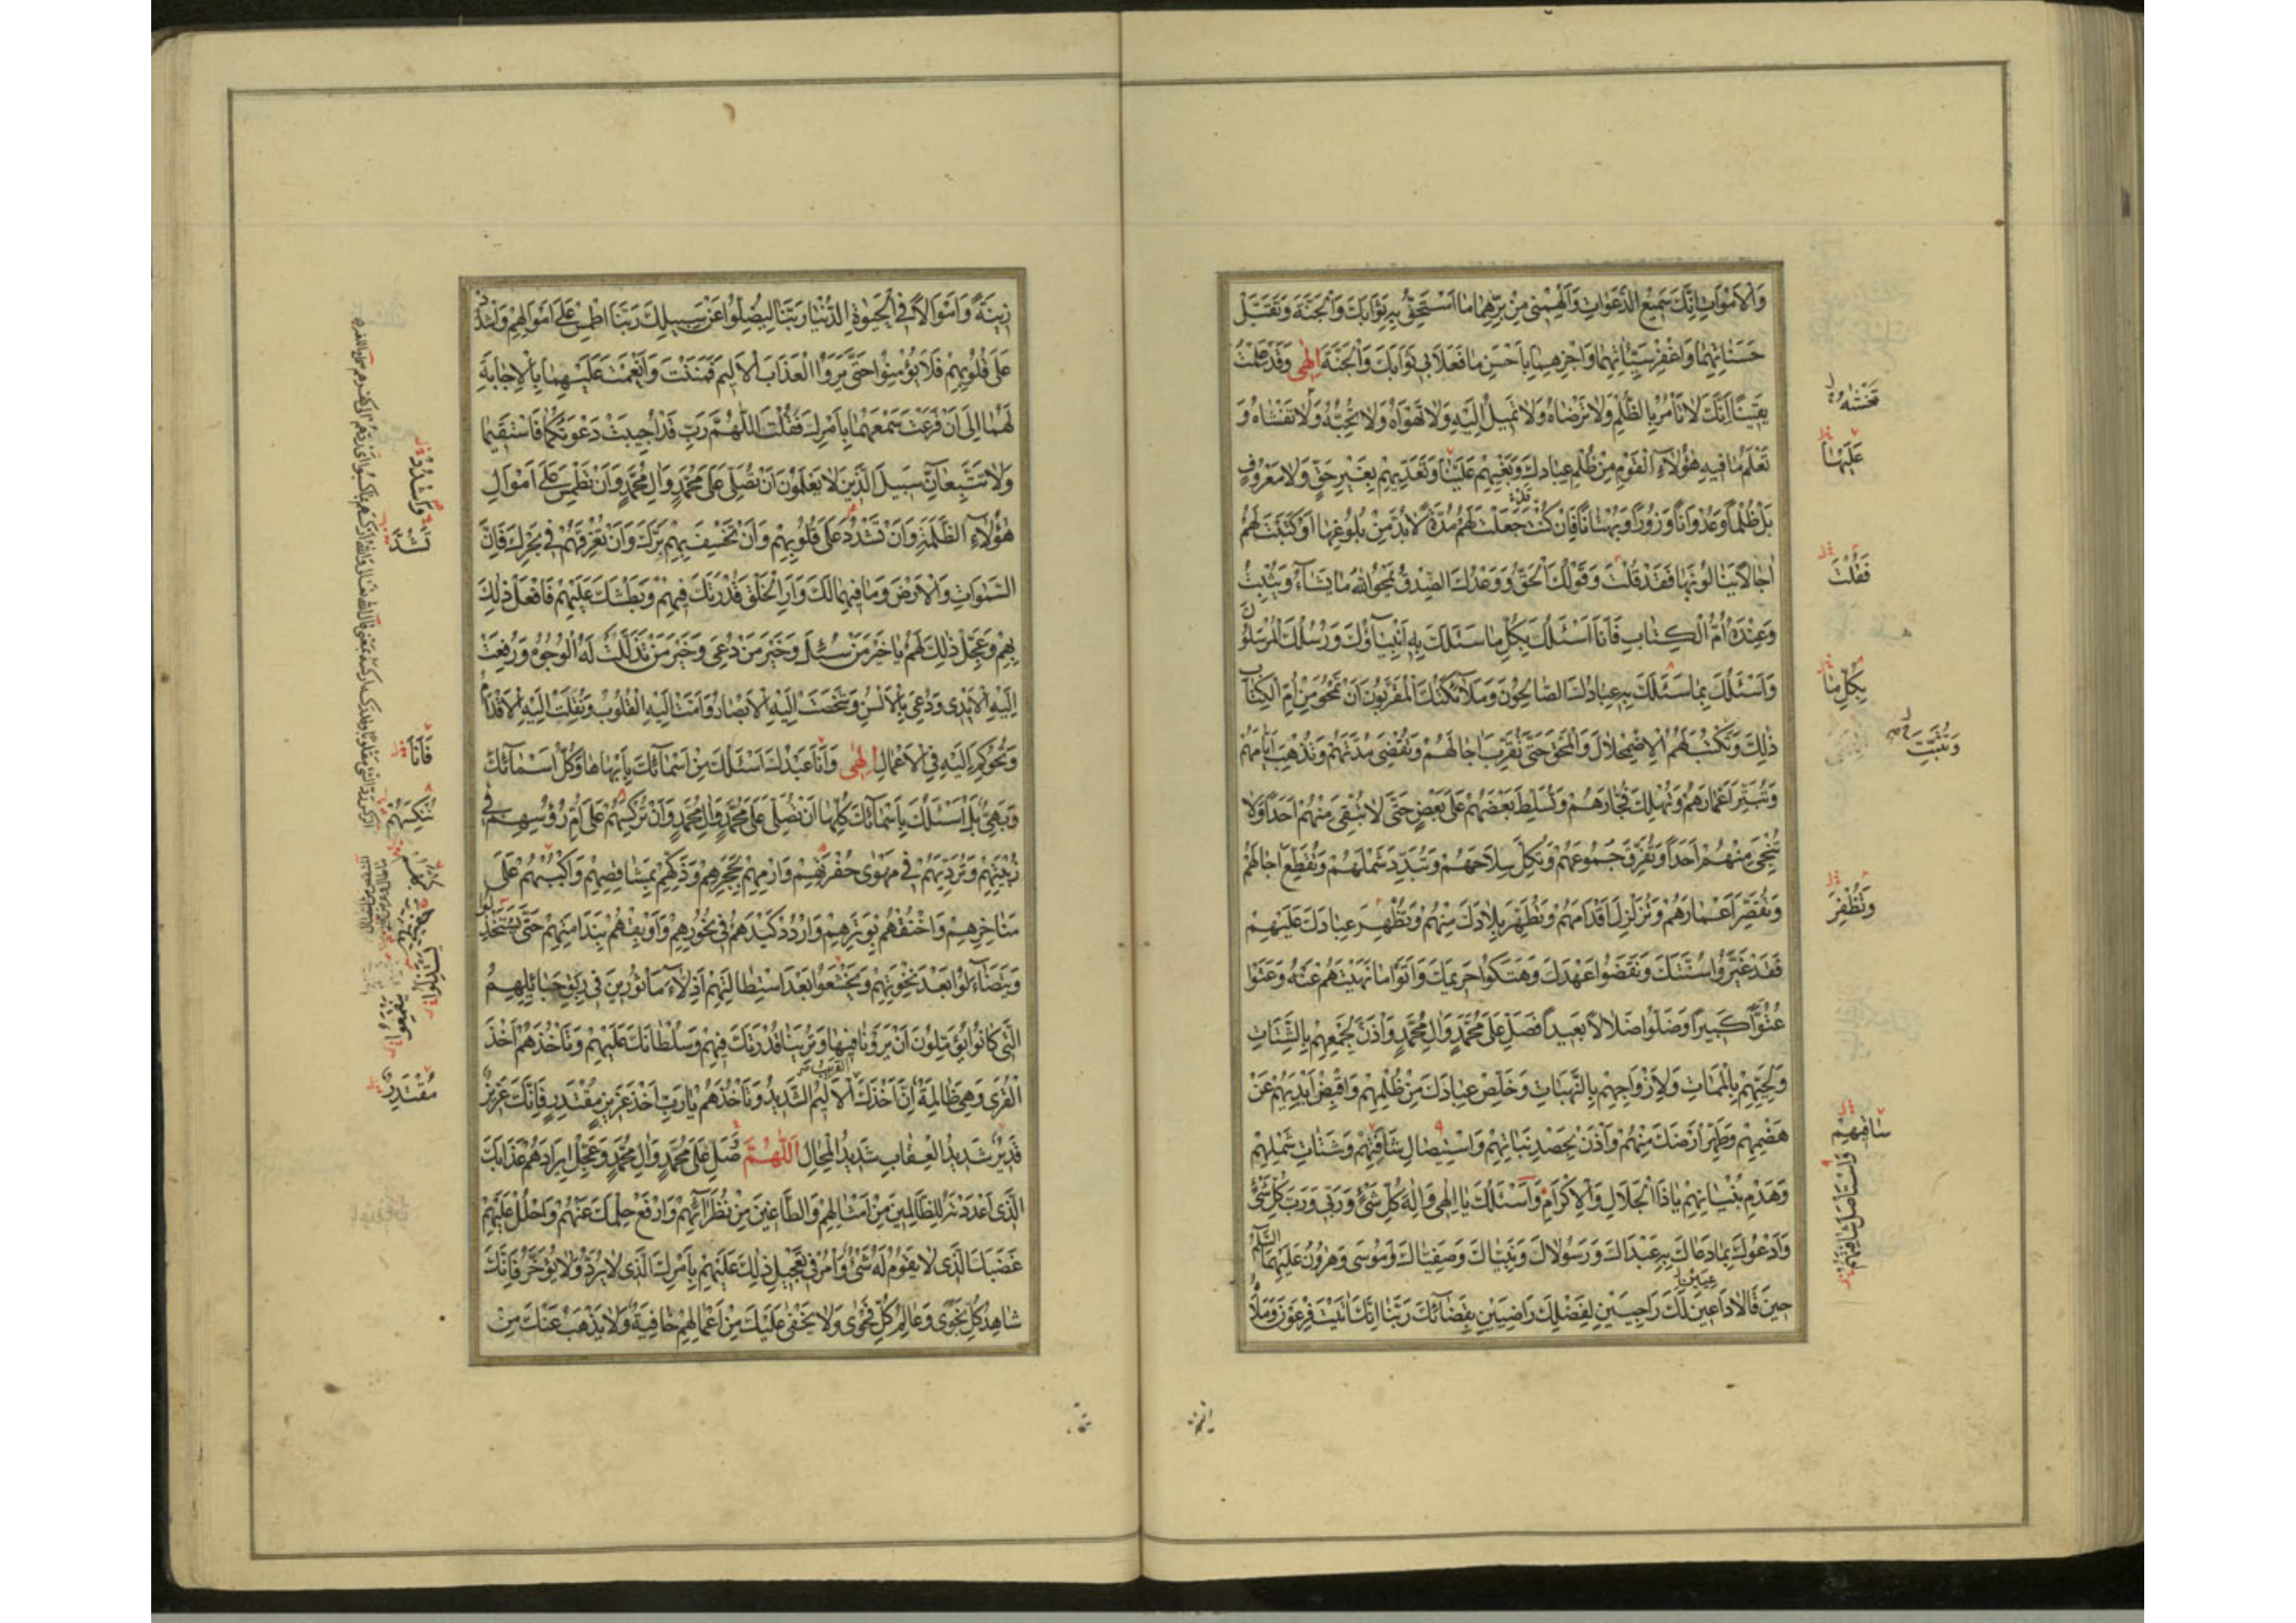 وَالْأَمْوَاتِ إِنَّكَ سَمِيعُ الدَّعَوَاتِ وَأَلْهِمْنِي مِنْ بِرِّهِمَا مَا أَسْتَحِقُّ بِهِ ثَوَابَكَ وَالْجَنَّةَ وَتَقَبَّلْ
حَسَنَاتِهِمَا وَاغْفِرْ سَيِّئَاتِهِمَا وَاجْزِهِمَا بِأَحْسَنِ مَا فَعَلَا بِي ثَوَابَكَ وَالْجَنَّةَ إِلٰهِي وَقَدْ عَلِمْتُ
يَقِينًا أَنَّكَ لَا تَأْمُرُ بِالظُّلْمِ وَلَا تَرْضَاهُ وَلَا تَمِيلُ إِلَيْهِ وَلَا تَهْوَاهُ وَلَا تُحِبُّهُ وَلَا تَغْشَاهُ وَ
تَعْلَمُ مَا فِيهِ هٰؤُلَاءِ الْقَوْمِ مِنْ ظُلْمِ عِبَادِكَ وَبَغْيِهِمْ عَلَيْنَا وَتَعَدِّيهِمْ بِغَيْرِ حَقٍّ وَلَا مَعْرُوفٍ
بَلْ ظُلْمًا وَعُدْوَانًا وَزُورًا وَبُهْتَانًا فَإِنْ كُنْتَ جَعَلْتَ لَهُمْ مُدَّةً لَابُدَّ مِنْ بُلُوغِهَا أَوْ كَتَبْتَ لَهُمْ
آجَالًا يَنَالُونَهَا فَقَدْ قُلْتَ وَقَوْلُكَ الْحَقُّ وَوَعْدُكَ الصِّدْقُ يَمْحُو اللهُ مَا يَشَاءُ وَيُثْبِتُ
وَعِنْدَهُ أُمُّ الْكِتَابِ فَأَنَا أَسْئَلُكَ بِكُلِّ مَا سَئَلَكَ بِهِ أَنْبِيَاؤُكَ وَرُسُلُكَ الْمُرْسَلُونَ
وَأَسْئَلُكَ بِمَا سَئَلَكَ بِهِ عِبَادُكَ الصَّالِحُونَ وَمَلَائِكَتُكَ الْمُقَرَّبُونَ أَنْ تَمْحُوَ مِنْ أُمِّ الْكِتَابِ
ذٰلِكَ وَتَكْتُبَ لَهُمُ الْإِضْمِحْلَالَ وَالْمَحْقَ حَتَّى تُقَرِّبَ آجَالَهُمْ وَتَقْضِيَ مُدَّتَهُمْ وَتُذْهِبَ أَيَّامَهُمْ
وَتُبَتِّرَ أَعْمَارَهُمْ وَتُهْلِكَ فُجَّارَهُمْ وَتُسَلِّطَ بَعْضَهُمْ عَلَى بَعْضٍ حَتَّى لَا تُبْقِيَ مِنْهُمْ أَحَدًا وَلَا
تُنْجِيَ مِنْهُمْ أَحَدًا وَتُفَرِّقَ جُمُوعَهُمْ وَتُكِلَّ سِلَاحَهُمْ وَتُبَدِّدَ شَمْلَهُمْ وَتُقَطِّعَ آجَالَهُمْ
وَتُقَصِّرَ أَعْمَارَهُمْ وَتُزَلْزِلَ أَقْدَامَهُمْ وَتُطَهِّرَ بِلَادَكَ مِنْهُمْ وَتُظْهِرَ عِبَادَكَ عَلَيْهِمْ
فَقَدْ غَيَّرُوا سُنَّتَكَ وَنَقَضُوا عَهْدَكَ وَهَتَكُوا حَرِيمَكَ وَأَتَوْا مَا نَهَيْتَهُمْ عَنْهُ وَعَتَوْا
عُتُوًّا كَبِيرًا وَضَلُّوا ضَلَالًا بَعِيدًا فَصَلِّ عَلَى مُحَمَّدٍ وَآلِ مُحَمَّدٍ وَأْذَنْ لِجَمْعِهِمْ بِالشَّتَاتِ
وَلِحَيِّهِمْ بِالْمَمَاتِ وَلِأَزْوَاجِهِمْ بِالنَّهَبَاتِ وَخَلِّصْ عِبَادَكَ مِنْ ظُلْمِهِمْ وَاقْبِضْ أَيْدِيَهُمْ عَنْ
هَضْمِهِمْ وَطَهِّرْ أَرْضَكَ مِنْهُمْ وَأْذَنْ بِحَصْدِ نَبَاتِهِمْ وَاسْتِيصَالِ شَافَتِهِمْ وَشَتَاتِ شَمْلِهِمْ
وَهَدْمِ بُنْيَانِهِمْ يَا ذَا الْجَلَالِ وَالْإِكْرَامِ وَأَسْئَلُكَ يَا إِلٰهِي وَإِلٰهَ كُلِّ شَيْءٍ وَرَبِّي وَرَبَّ كُلِّ شَيْءٍ
وَأَدْعُوكَ بِمَا دَعَاكَ بِهِ عَبْدَاكَ وَرَسُولَاكَ وَنَبِيَّاكَ وَصَفِيَّاكَ وَمُوسَى وَهٰرُونُ عَلَيْهِمَا السَّلَمُ
حِينَ قَالَا دَاعِيَيْنِ لَكَ رَاجِيَيْنِ لِفَضْلِكَ رَاضِيَيْنِ بِقَضَائِكَ رَبَّنَا إِنَّكَ آتَيْتَ فِرْعَوْنَ وَمَلَأَهُ
تَغْشَاهُ
عَلَيْهَا
فَقُلْتَ
بِكُلِّ مَا
وَتُثْبِتَ
وَتُظْفِرَ
شَافِهِمْ
وَاسْتَأْصِلْ شَافَتَهُمْ
زِينَةً وَأَمْوَالًا فِي الْحَيٰوةِ الدُّنْيَا رَبَّنَا لِيُضِلُّوا عَنْ سَبِيلِكَ رَبَّنَا اطْمِسْ عَلَى أَمْوَالِهِمْ وَاشْدُدْ
عَلَى قُلُوبِهِمْ فَلَا يُؤْمِنُوا حَتَّى يَرَوُا الْعَذَابَ الْأَلِيمَ فَمَنَنْتَ وَأَنْعَمْتَ عَلَيْهِمَا بِالْإِجَابَةِ
لَهُمَا إِلَى أَنْ قَرَعْتَ سَمْعَهُمَا بِأَمْرِكَ فَقُلْتَ اللّٰهُمَّ رَبِّ قَدْ أُجِيبَتْ دَعْوَتُكُمَا فَاسْتَقِيمَا
وَلَا تَتَّبِعَانِّ سَبِيلَ الَّذِينَ لَا يَعْلَمُونَ أَنْ تُصَلِّيَ عَلَى مُحَمَّدٍ وَآلِ مُحَمَّدٍ وَأَنْ تَطْمِسَ عَلَى أَمْوَالِ
هٰؤُلَاءِ الظَّلَمَةِ وَأَنْ تَشْدُدَ عَلَى قُلُوبِهِمْ وَأَنْ تَخْسِفَ بِهِمْ بَرَّكَ وَأَنْ تُغْرِقَهُمْ فِي بَحْرِكَ فَإِنَّ
السَّمٰوَاتِ وَالْأَرْضَ وَمَا فِيهِمَا لَكَ وَأَرِ الْخَلْقَ قُدْرَتَكَ فِيهِمْ وَبَطْشَكَ عَلَيْهِمْ فَافْعَلْ ذٰلِكَ
بِهِمْ وَعَجِّلْ ذٰلِكَ لَهُمْ يَا خَيْرَ مَنْ سُئِلَ وَخَيْرَ مَنْ دُعِيَ وَخَيْرَ مَنْ تَذَلَّلَتْ لَهُ الْوُجُوهُ وَرُفِعَتْ
إِلَيْهِ الْأَيْدِي وَدُعِيَ بِالْأَلْسُنِ وَشَخَصَتْ إِلَيْهِ الْأَبْصَارُ وَأَمَّتْ إِلَيْهِ الْقُلُوبُ وَنُقِلَتْ إِلَيْهِ الْأَقْدَامُ
وَتُحُوكِمَ إِلَيْهِ فِي الْأَعْمَالِ إِلٰهِي وَأَنَا عَبْدُكَ أَسْئَلُكَ مِنْ أَسْمَائِكَ بِأَبْهَاهَا وَكُلُّ أَسْمَائِكَ
وَبَهِيٌّ بَلْ أَسْئَلُكَ بِأَسْمَائِكَ كُلِّهَا أَنْ تُصَلِّيَ عَلَى مُحَمَّدٍ وَآلِ مُحَمَّدٍ وَأَنْ تُرْكِسَهُمْ عَلَى أُمِّ رُؤُسِهِمْ فِي
زُبْيَتِهِمْ وَتُرَدِّيَهُمْ فِي مَهْوَى حُفْرَتِهِمْ وَارْمِهِمْ بِحَجَرِهِمْ وَذَكِّهِمْ بِمَشَاقِصِهِمْ وَاكْبُبْهُمْ عَلَى
مَنَاخِرِهِمْ وَاخْنُقْهُمْ بِوَتَرِهِمْ وَارْدُدْ كَيْدَهُمْ فِي نُحُورِهِمْ وَأَوْبِقْهُمْ بِنَدَامَتِهِمْ حَتَّى يَسْتَخْذِلُوا
وَيَتَضَاءَلُوا بَعْدَ نَخْوَتِهِمْ وَيَخْشَعُوا بَعْدَ اسْتِطَالَتِهِمْ أَذِلَّاءَ مَأْثُورِينَ فِي رِبَقِ حَبَائِلِهِمُ
الَّتِي كَانُوا يُؤَمِّلُونَ أَنْ يَرَوْنَا فِيهَا وَتُرِيَنَا قُدْرَتَكَ فِيهِمْ وَسُلْطَانَكَ عَلَيْهِمْ وَتَأْخُذَهُمْ أَخْذَ
الْقُرَى وَهِيَ ظَالِمَةٌ إِنَّ أَخْذَكَ الْأَلِيمُ الشَّدِيدُ وَتَأْخُذَهُمْ يَا رَبِّ أَخْذَ عَزِيزٍ مُقْتَدِرٍ فَإِنَّكَ عَزِيزٌ
قَدِيرٌ شَدِيدُ الْعِقَابِ شَدِيدُ الْمِحَالِ اَللّٰهُمَّ صَلِّ عَلَى مُحَمَّدٍ وَآلِ مُحَمَّدٍ وَعَجِّلْ إِيرَادَهُمْ عَذَابَكَ
الَّذِي أَعْدَدْتَهُ لِلظَّالِمِينَ مِنْ أَمْثَالِهِمْ وَالطَّاغِينَ مِنْ نُظَرَائِهِمْ وَارْفَعْ حِلْمَكَ عَنْهُمْ وَاحْلُلْ عَلَيْهِمْ
غَضَبَكَ الَّذِي لَا يَقُومُ لَهُ شَيْءٌ وَأْمُرْ فِي تَعْجِيلِ ذٰلِكَ عَلَيْهِمْ بِأَمْرِكَ الَّذِي لَا يُرَدُّ وَلَا يُؤَخَّرُ فَإِنَّكَ
شَاهِدُ كُلِّ نَجْوَى وَعَالِمُ كُلِّ فَحْوَى وَلَا يَخْفَى عَلَيْكَ مِنْ أَعْمَالِهِمْ خَافِيَةٌ وَلَا يَذْهَبُ عَنْكَ مِنْ
وَاشْدُدْ
تَشُدَّ
فَأَنَا
تُنَكِّسَهُمْ
مُقْتَدِرٍ